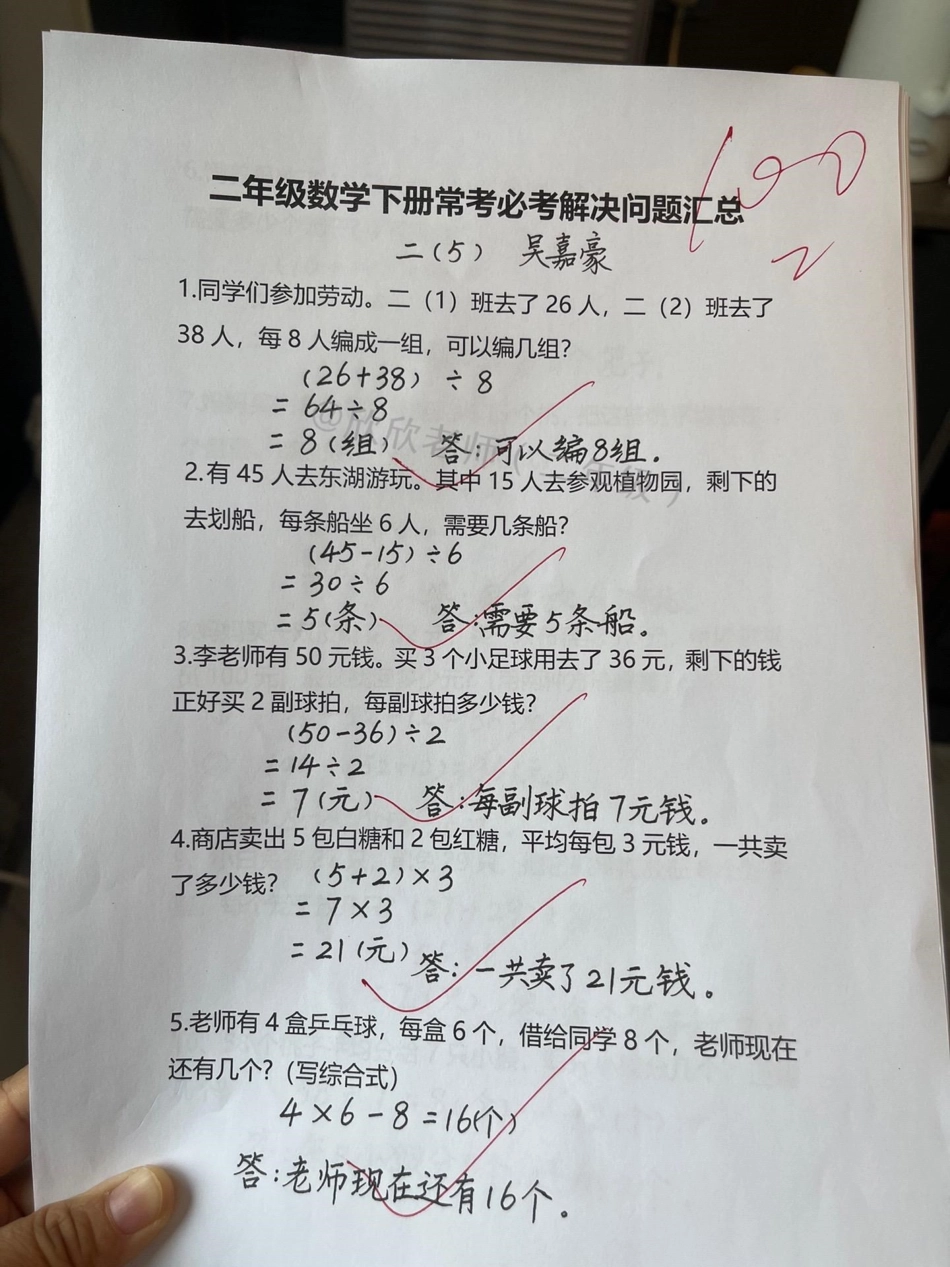 二年级数学下册常考必考解决问题汇总
100
二(5) 吴嘉豪
1.同学们参加劳动。二（1）班去了26人，二（2）班去了
38人，每8人编成一组，可以编几组？
(26+38) ÷ 8
= 64÷8
= 8(组) 答:可以编8组.
@欣欣老师(二年级)
2.有45人去东湖游玩。其中15人去参观植物园，剩下的
去划船，每条船坐6人，需要几条船？
(45-15) ÷6
= 30÷6
= 5(条) 答:需要5条船.
3.李老师有50元钱。买3个小足球用去了36元，剩下的钱
正好买2副球拍，每副球拍多少钱？
(50-36)÷2
= 14÷2
= 7(元) 答:每副球拍7元钱.
4.商店卖出5包白糖和2包红糖，平均每包3元钱，一共卖
了多少钱？ (5+2)×3
= 7×3
= 21(元) 答:一共卖了21元钱.
5.老师有4盒乒乓球，每盒6个，借给同学8个，老师现在
还有几个？(写综合式)
4×6-8=16(个)
答:老师现在还有16个.